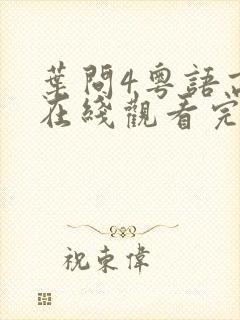 葉問4粵語高
在綫觀看完
祝東偉